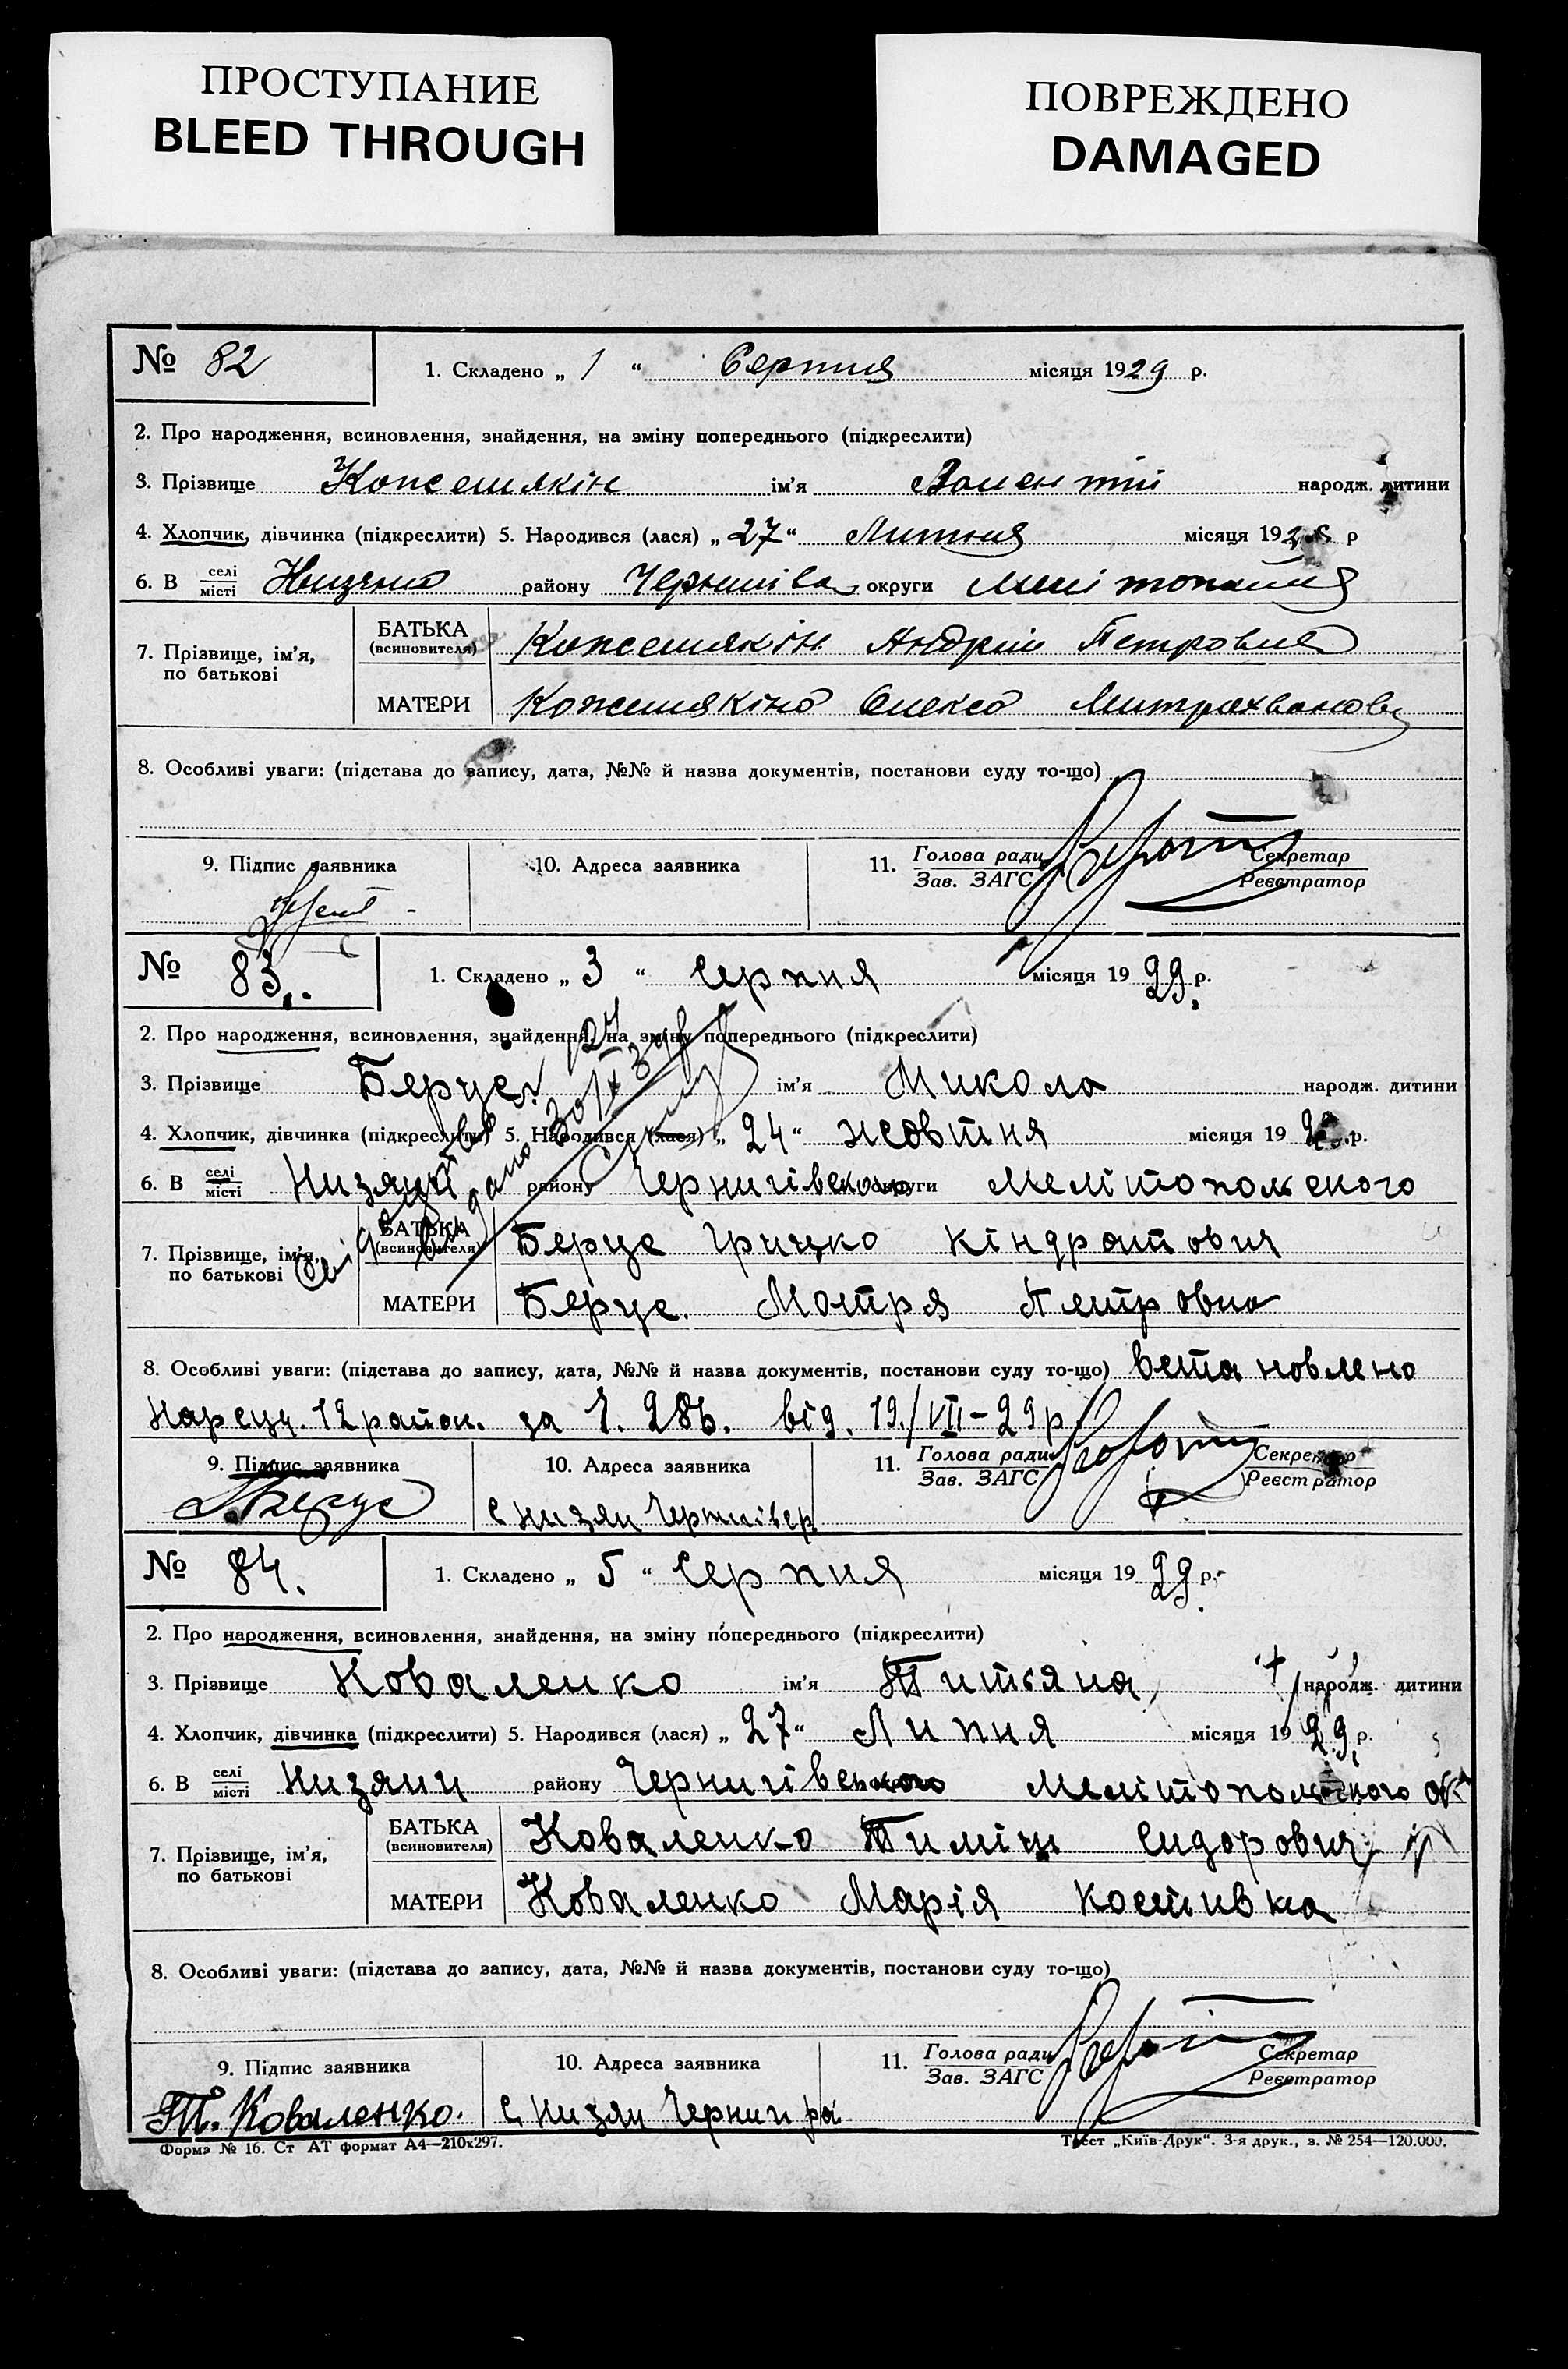 ПРОСТУПАНИЕ
BLEED THROUGH
ПОВРЕЖДЕНО
DAMAGED
№ 82 1. Складено „ 1 “ Серпня місяця 1929 р.
2. Про народження, всиновлення, знайдення, на зміну попереднього (підкреслити)
3. Прізвище Кожемякін ім'я народж. дитини
4. Хлопчик, дівчинка (підкреслити) 5. Народився (лася) „ 27 “ місяця 192 р
6. В селі місті району округи
7. Прізвище, ім'я, по батькові
БАТЬКА (всиновителя) Кожемякін Андрій Петрович
МАТЕРИ Кожемякіна
8. Особливі уваги: (підстава до запису, дата, №№ й назва документів, постанови суду то-що)
9. Підпис заявника 10. Адреса заявника 11. Голова ради Зав. ЗАГС Секретар Реєстратор
№ 83. 1. Складено „ 3 “ Серпня місяця 1929 р.
2. Про народження, всиновлення, знайдення, на зміну попереднього (підкреслити)
3. Прізвище ім'я Микола народж. дитини
4. Хлопчик, дівчинка (підкреслити) 5. Народився (лася) „ 24 “ жовтня місяця 19 р.
6. В селі місті Низяни району Чернигівского округи Мелітопольского
7. Прізвище, ім'я, по батькові
БАТЬКА (всиновителя) Берце Грицко Кіндратович
МАТЕРИ Берце Мотря Петровна
8. Особливі уваги: (підстава до запису, дата, №№ й назва документів, постанови суду то-що) Встановлено
Нарсуд. 12 район. за 286. від. 19/VII-29 р
9. Підпис заявника 10. Адреса заявника 11. Голова ради Зав. ЗАГС Секретар Реєстратор
с Низян
№ 84. 1. Складено „ 5 “ Серпня місяця 1929 р.
2. Про народження, всиновлення, знайдення, на зміну попереднього (підкреслити)
3. Прізвище Коваленко ім'я Титяна народж. дитини
4. Хлопчик, дівчинка (підкреслити) 5. Народився (лася) „ 27 “ Липня місяця 1929 р.
6. В селі місті Низяни району Чернигівского Мелітопольского ок
7. Прізвище, ім'я, по батькові
БАТЬКА (всиновителя) Коваленко Тиміш Сидорович
МАТЕРИ Коваленко Марія Костивна
8. Особливі уваги: (підстава до запису, дата, №№ й назва документів, постанови суду то-що)
9. Підпис заявника 10. Адреса заявника 11. Голова ради Зав. ЗАГС Секретар Реєстратор
Т. Коваленко. с. Низян Черниг ра
Форма № 16. Ст АТ формат А4—210х297. Трест „Київ-Друк“. 3-я друк., з. № 254—120.000.